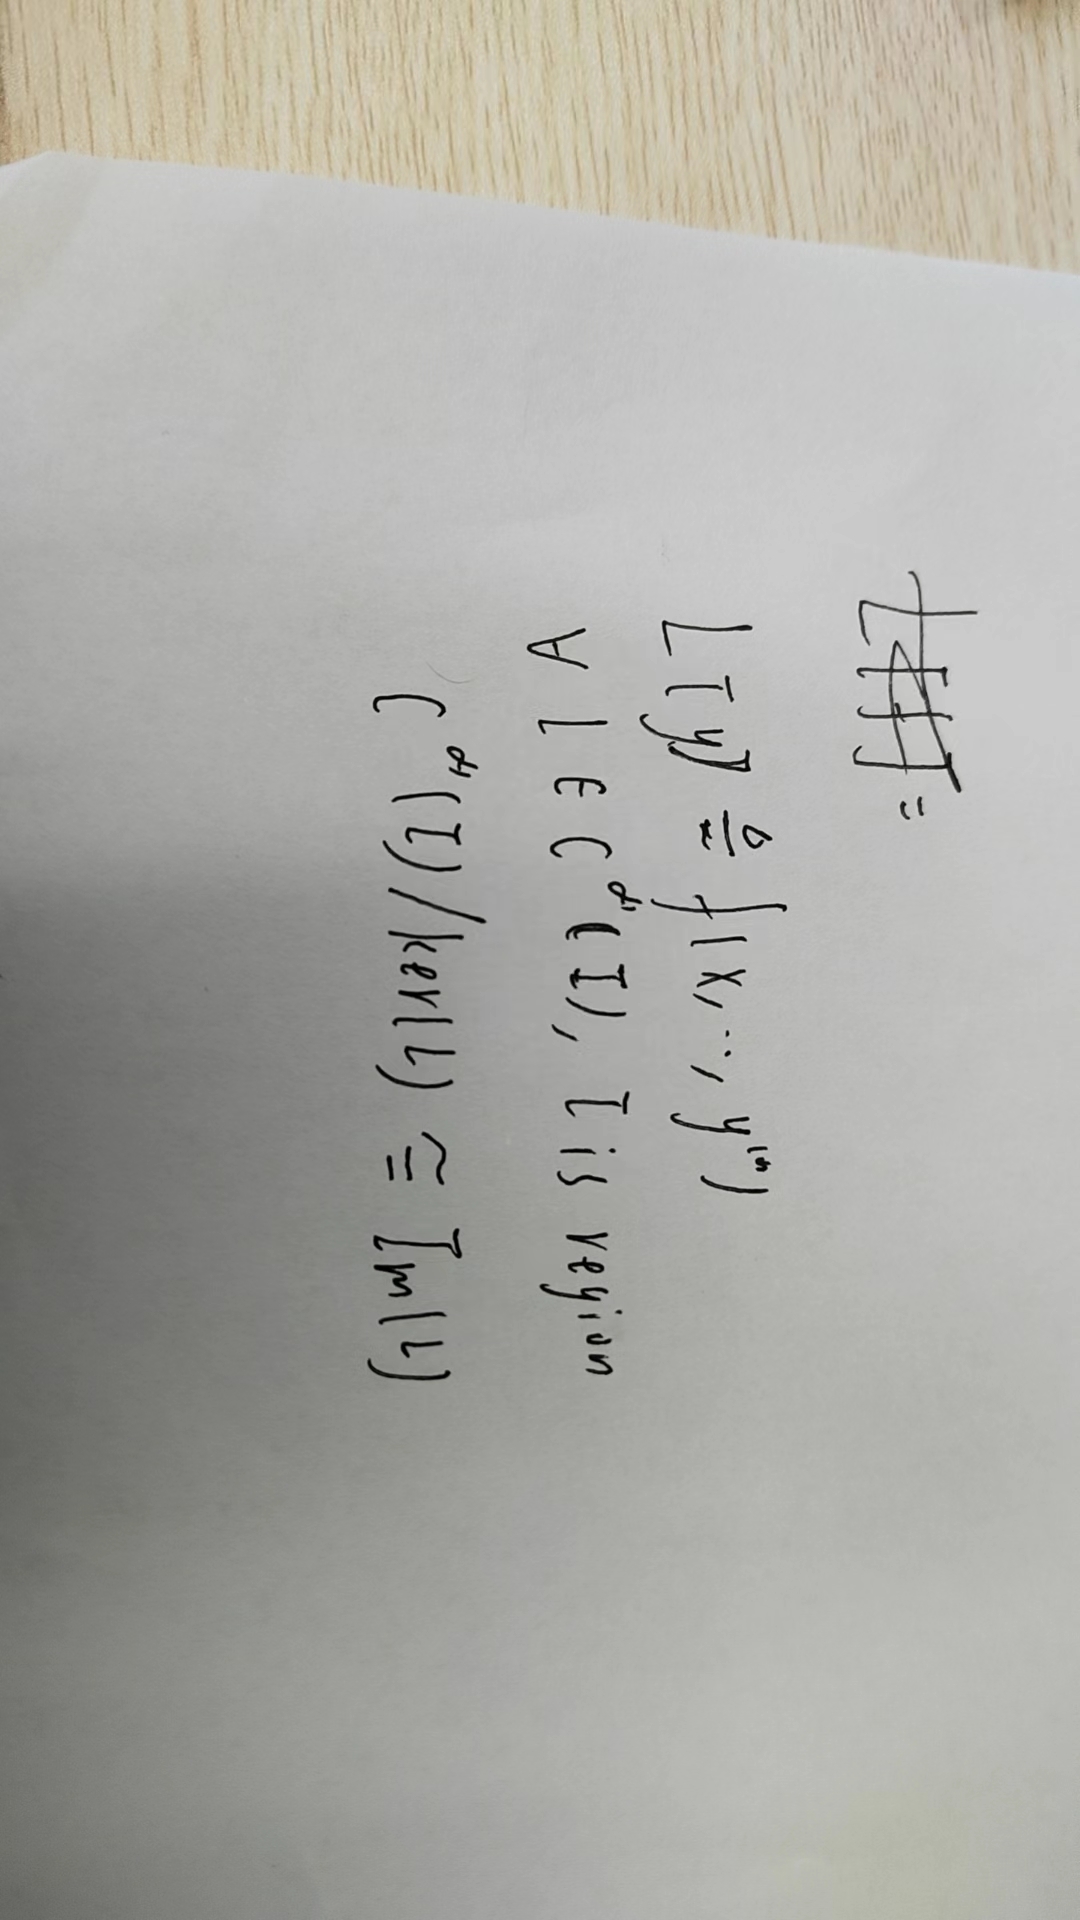 L[y] ≜ f(x, ..., y⁽ⁿ⁾)
∀ L ∈ C (I), I is region
C (I)/ker(L) ≅ Im(L)